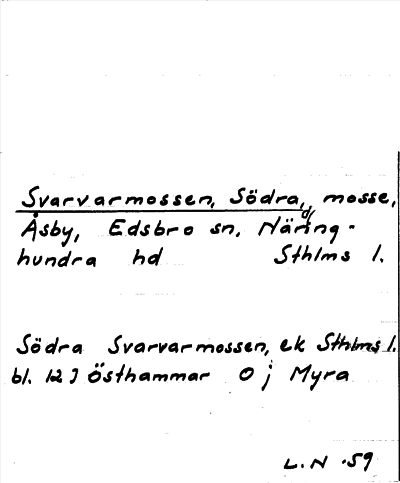 Svarvarmossen, Södra, mosse,
Åsby, Edsbro sn, Närding-
hundra hd Sthlms l.
Södra Svarvarmossen, ek Sthlms l.
bl. 12 J Östhammar O j Myra
L.N. 59